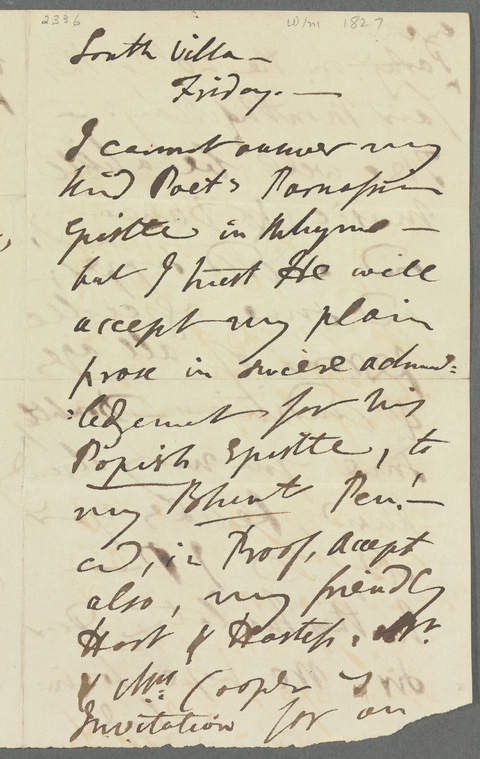 2336 W/m 1827
South Villa —
Friday. —
I cannot answer my
kind Poet's Parnassian
Epistle in Rhyme —
but I trust He will
accept my plain
prose in sincere acknow=
=ledgement for his
Popish Epistle, to
my Blunt Pen! —
and, in Proof, accept
also, my friendly
Host & Hostess, Mr.
& Mrs Cooper's
Invitation for an